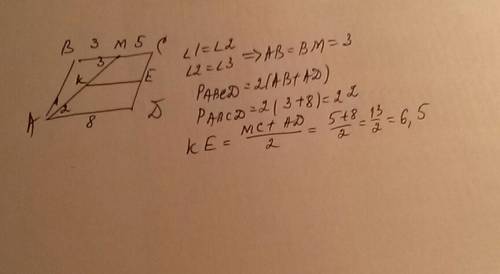 B 3 M 5 C
3
K E
2
A 8 D
∠1=∠2
∠2=∠3 ⇒ AB=BM=3
P ABCD=2(AB+AD)
P ABCD=2(3+8)=22
KE = (MC+AD)/2 = (5+8)/2 = 13/2 = 6,5